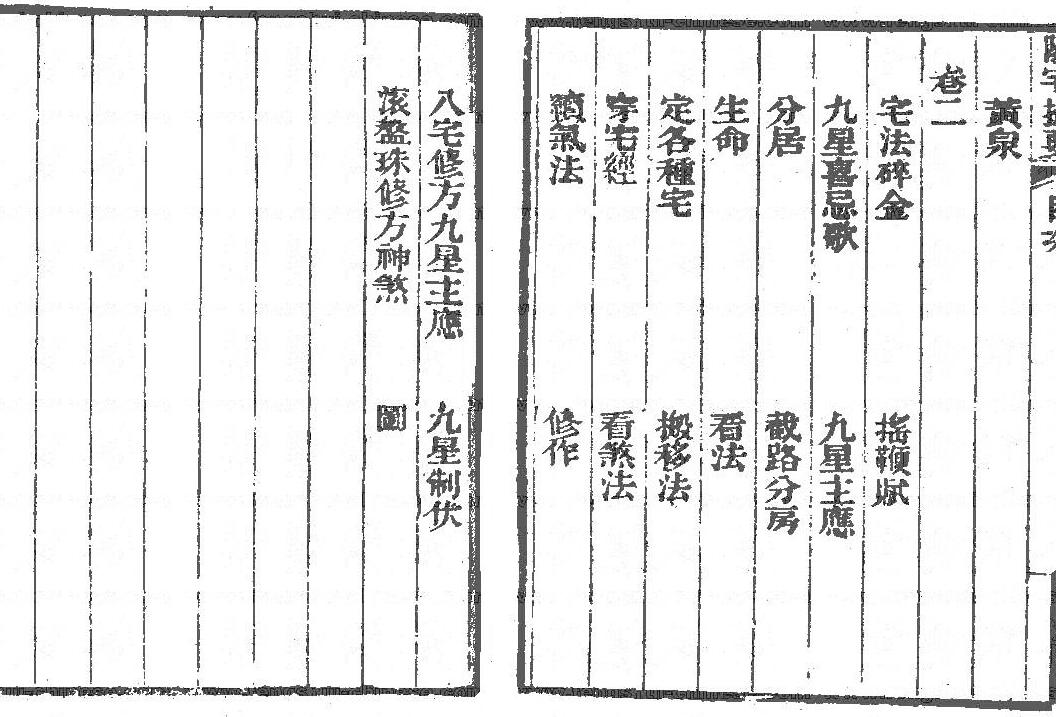 黃泉
卷二
宅法碎金 搖鞭賦
九星喜忌歌 九星主應
分居 截路分房
生命 看法
定各種宅 搬移法
穿宅經 看煞法
氣法 修作
八宅修方九星主應 九星制伏
滾盤珠修方神煞 圖